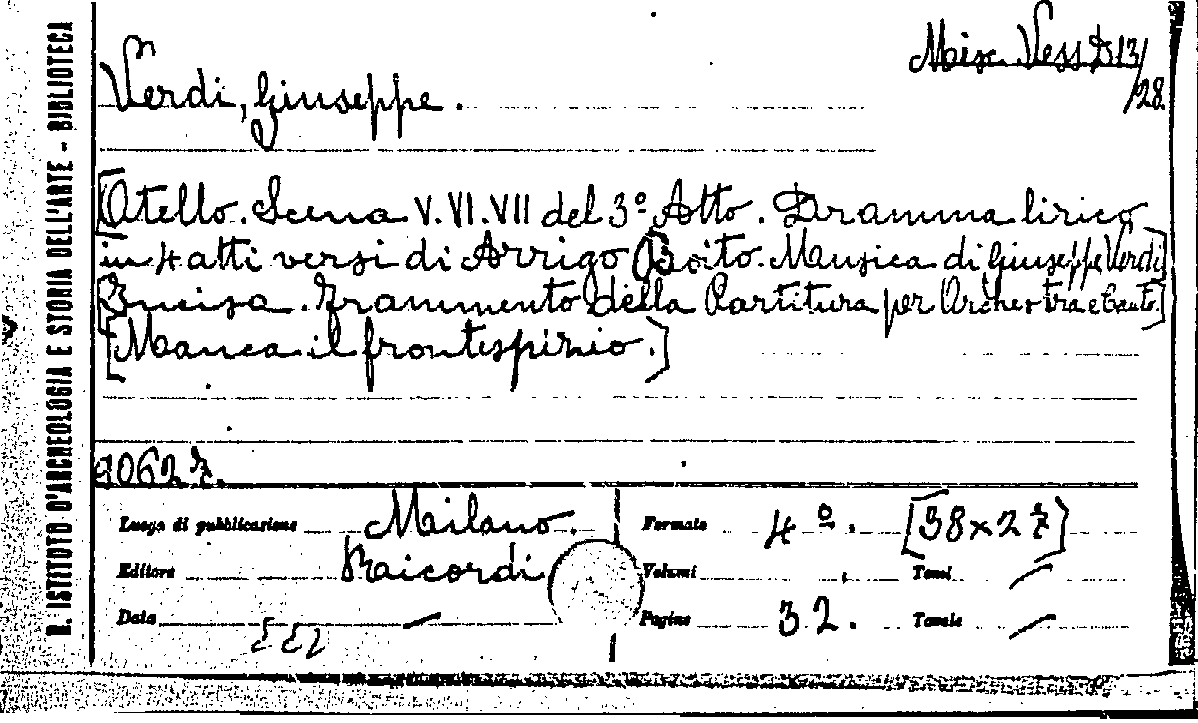 R. ISTITUTO D'ARCHEOLOGIA E STORIA DELL'ARTE - BIBLIOTECA
Misc. Vess D 13/28.
Verdi, Giuseppe.
[Otello. Scena V. VI. VII del 3º Atto. Dramma lirico
in 4 atti versi di Arrigo Boito. Musica di Giuseppe Verdi]
[Incisa. Frammento della Partitura per Orchestra e Canto.]
[Manca il frontespizio.]
Luogo di pubblicazione Milano.
Editore Ricordi
Data —
Formato 4º. [38×27]
Volumi
Tomi —
Pagine 32.
Tavole —